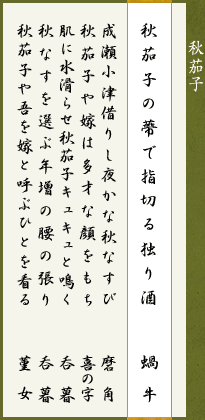 秋茄子
秋茄子の蔕で指切る独り酒　蝸牛
成瀬小津借りし夜かな秋なすび　磨角
秋茄子や嫁は多才な顔をもち　喜の字
肌に水滑らせ秋茄子キュキュと鳴く　呑暮
秋なすを選ぶ年増の腰の張り　呑暮
秋茄子や吾を嫁と呼ぶひとを看る　菫女